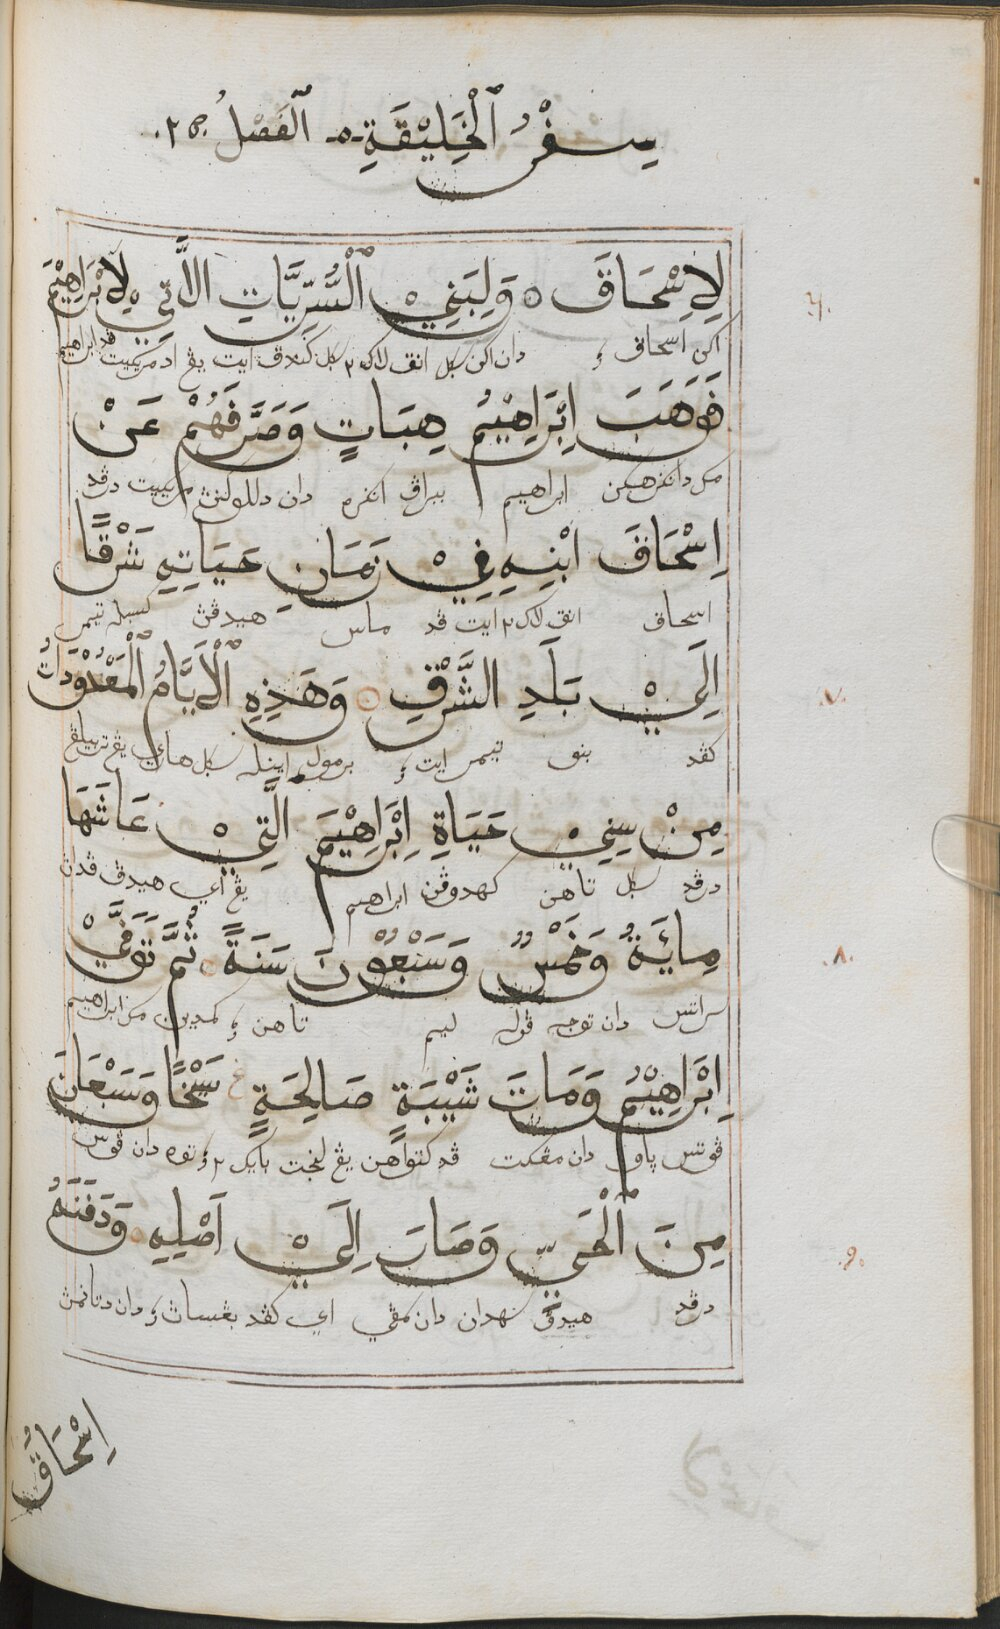 سِفْرُ ٱلْخَلِيْقَةِ -ه- ٱلْفَصْلُ ٢٥.
لِاِسْحَاقَ ○ وَلِبَنِيْ ٱلْسُّرِّيَّاتِ اللَّاتِيْ لِاِبْرَاهِيْمَ
.٦.
اكن اسحاق دان اكن سكل انق لاكي٢ سكل كندق ايت يڠ اد
فَوَهَبَ اِبْرَاهِيْمُ هِبَاتٍ وَصَرَّفَهُمْ عَنْ
مك دانكرهكن ابراهيم بيراڤ انكره دان درڤد
اِسْحَاقَ ابْنِهِ فِيْ زَمَانِ حَيَاتِهِ شَرْقًا
اسحاق انق لاكي٢ ايت ڤد ماس هيدڤڽ كسبله تيمر
اِلَيْ بَلَدِ الشَّرْقِ ○ وَهَذِهِ ٱلْاَيَّامُ ٱلْمَعْدُوْدَاتُ
.٧.
كڤد بنو تيمر ايت برمول اينله سكل هاري يڠ تربيلڠ
مِنْ سِنِيْ حَيَاةِ اِبْرَاهِيْمَ الَّتِيْ عَاشَهَا
درڤد سكل تاهن كهدوڤن ابراهيم يڠ اي هيدڤ ڤدڽ
مِائَةٌ وَخَمْسٌ وَسَبْعُوْنَ سَنَةً ○ ثُمَّ تَوَفَّيْ
.٨.
سراتس دان توجه ڤوله ليم تاهن كمدين مك ابراهيم
اِبْرَاهِيْمُ وَمَاتَ شَيْبَةٍ صَالِحَةٍ شَيْخًا وَسَبْعَانَ
ڤوتس دان مڠكت ڤد كتواهن يڠ لنجت بايك٢ توه دان
مِنَ ٱلْحَيِّ وَصَارَ اِلَيْ اَصْلِهِ ○ وَدَفَنَهُ
.٩.
درڤد هيدڤ دان اي كڤد بڠساڽ دان دتانمڽ
اِسْحَاقُ